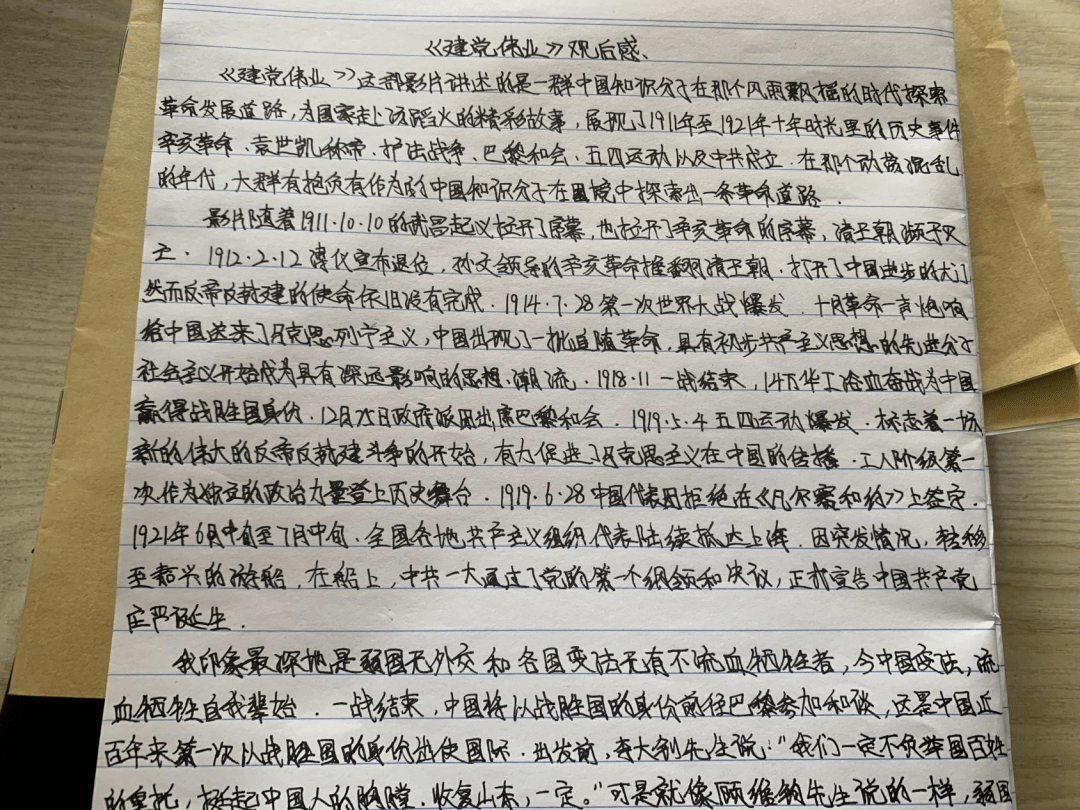 《建党伟业》观后感、
《建党伟业》这部影片讲述的是一群中国知识分子在那个风雨飘摇的时代探索
革命发展道路，为国家走上汤蹈火的精彩故事，展现了1911年至1921年十年时光里的历史事件
辛亥革命、袁世凯称帝、护法战争、巴黎和会、五四运动以及中共成立．在那个动荡混乱
的年代，大群有抱负有作为的中国知识分子在困境中探索出一条革命道路．
影片随着1911.10.10的武昌起义拉开了序幕，也拉开了辛亥革命的序幕，清王朝濒于灭
亡．1912.2.12溥仪宣布退位，孙文领导的辛亥革命推翻清王朝．打开了中国进步的大门
然而反帝反封建的使命依旧没有完成．1914.7.28第一次世界大战爆发．十月革命一声炮响
给中国送来了马克思列宁主义，中国出现了一批追随革命，具有初步共产主义思想的先进分子
社会主义开始成为具有深远影响的思想潮流．1918.11一战结束，14万华工浴血奋战为中国
赢得战胜国身份．12月25日政府派团出席巴黎和会．1919.5.4五四运动爆发．标志着一场
新的伟大的反帝反封建斗争的开始，有力促进了马克思主义在中国的传播．工人阶级第一
次作为独立的政治力量登上历史舞台．1919.6.28中国代表团拒绝在《凡尔赛和约》上签字．
1921年6月中旬至7月中旬．全国各地共产主义组织代表陆续抵达上海．因突发情况，转移
至嘉兴的游船，在船上，中共一大通过了党的第一个纲领和决议，正式宣告中国共产党
庄严诞生．
我印象最深地是弱国无外交和各国变法无有不流血牺牲者，今中国变法，流
血牺牲自我辈始．一战结束，中国将以战胜国的身份前往巴黎参加和谈，这是中国近
百年来第一次以战胜国的身份出使国际．出发前，李大钊先生说：“我们一定不负举国百姓
的重托，挺起中国人的胸膛．收复山东，一定。”可是就像顾维钧先生说的一样，弱国